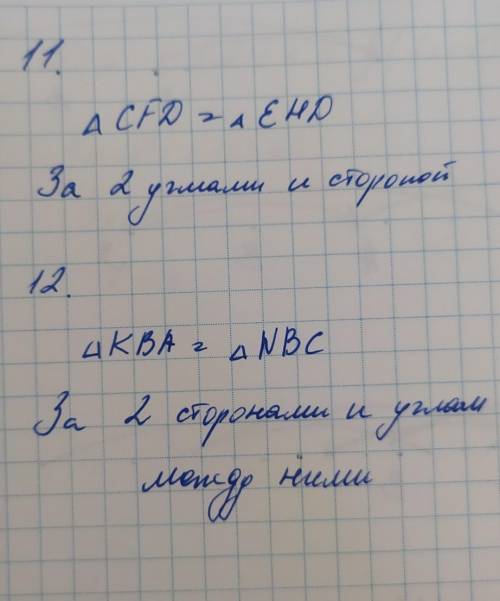 11.
△ CFD = △ EHD
За 2 углами и стороной
12.
△ KBA = △ NBC
За 2 сторонами и углам
между ними